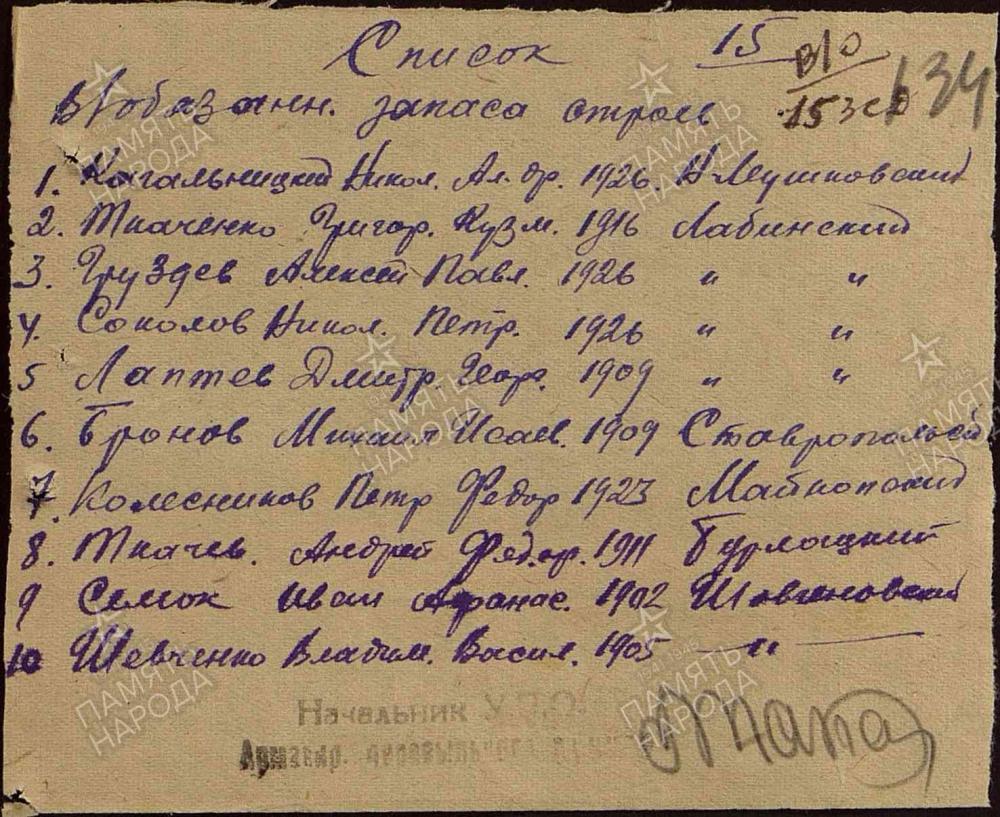 Список 15 В/О 134
В/обязанн. запаса строев 153 сд
1. Кагальницкий Никол. Ал-др. 1926. Н-Мушковский
2. Ткаченко Григор. Кузм. 1916 Лабинский
3. Груздев Алексей Павл. 1926 " "
4. Соколов Никол. Петр. 1926 " "
5 Лаптев Дмитр. Геор. 1909 " "
6. Бронов Михаил Исаев. 1909 Ставропольск
7. Колесников Петр Федор 1923 Майкопский
8. Ткачев. Андрей Федор. 1911
9 Семок Иван Афанас. 1902 Шовгеновский
10 Шевченко Владим. Васил. 1905 — " —
Начальник
Армавир.
ПАМЯТЬ НАРОДА